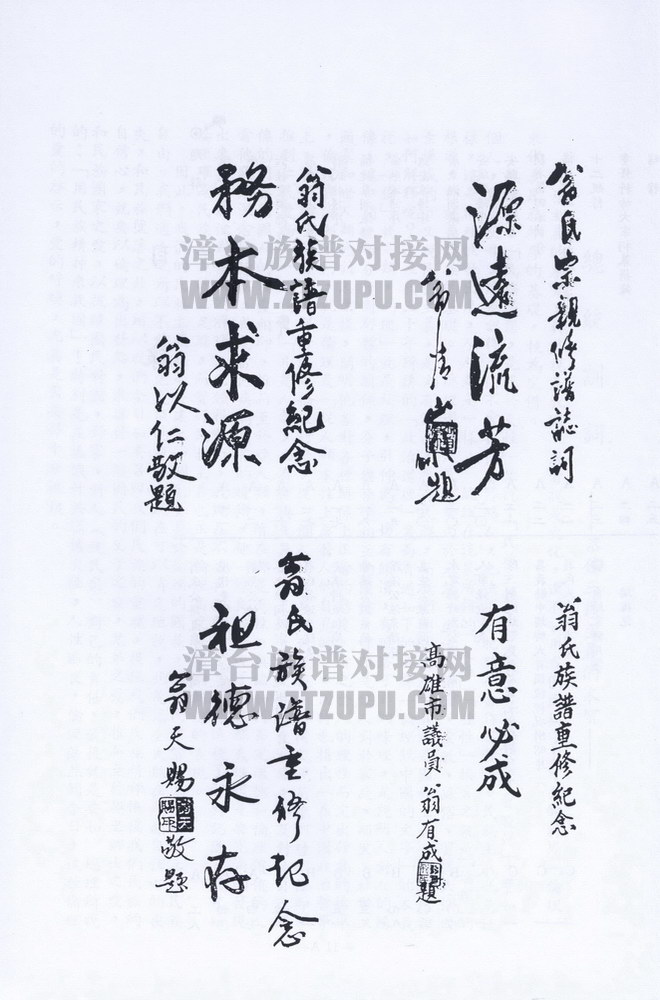 翁氏宗親修譜誌詞
源遠流芳
翁 題
翁氏族譜重修紀念
務本求源
翁以仁敬題
翁氏族譜重修紀念
有意必成
高雄市議員 翁有成 題
翁氏族譜重修記念
祖德永存
翁天賜 敬題
漳台族谱对接网
WWW.ZTZUPU.COM
漳台族谱对接网
WWW.ZTZUPU.COM